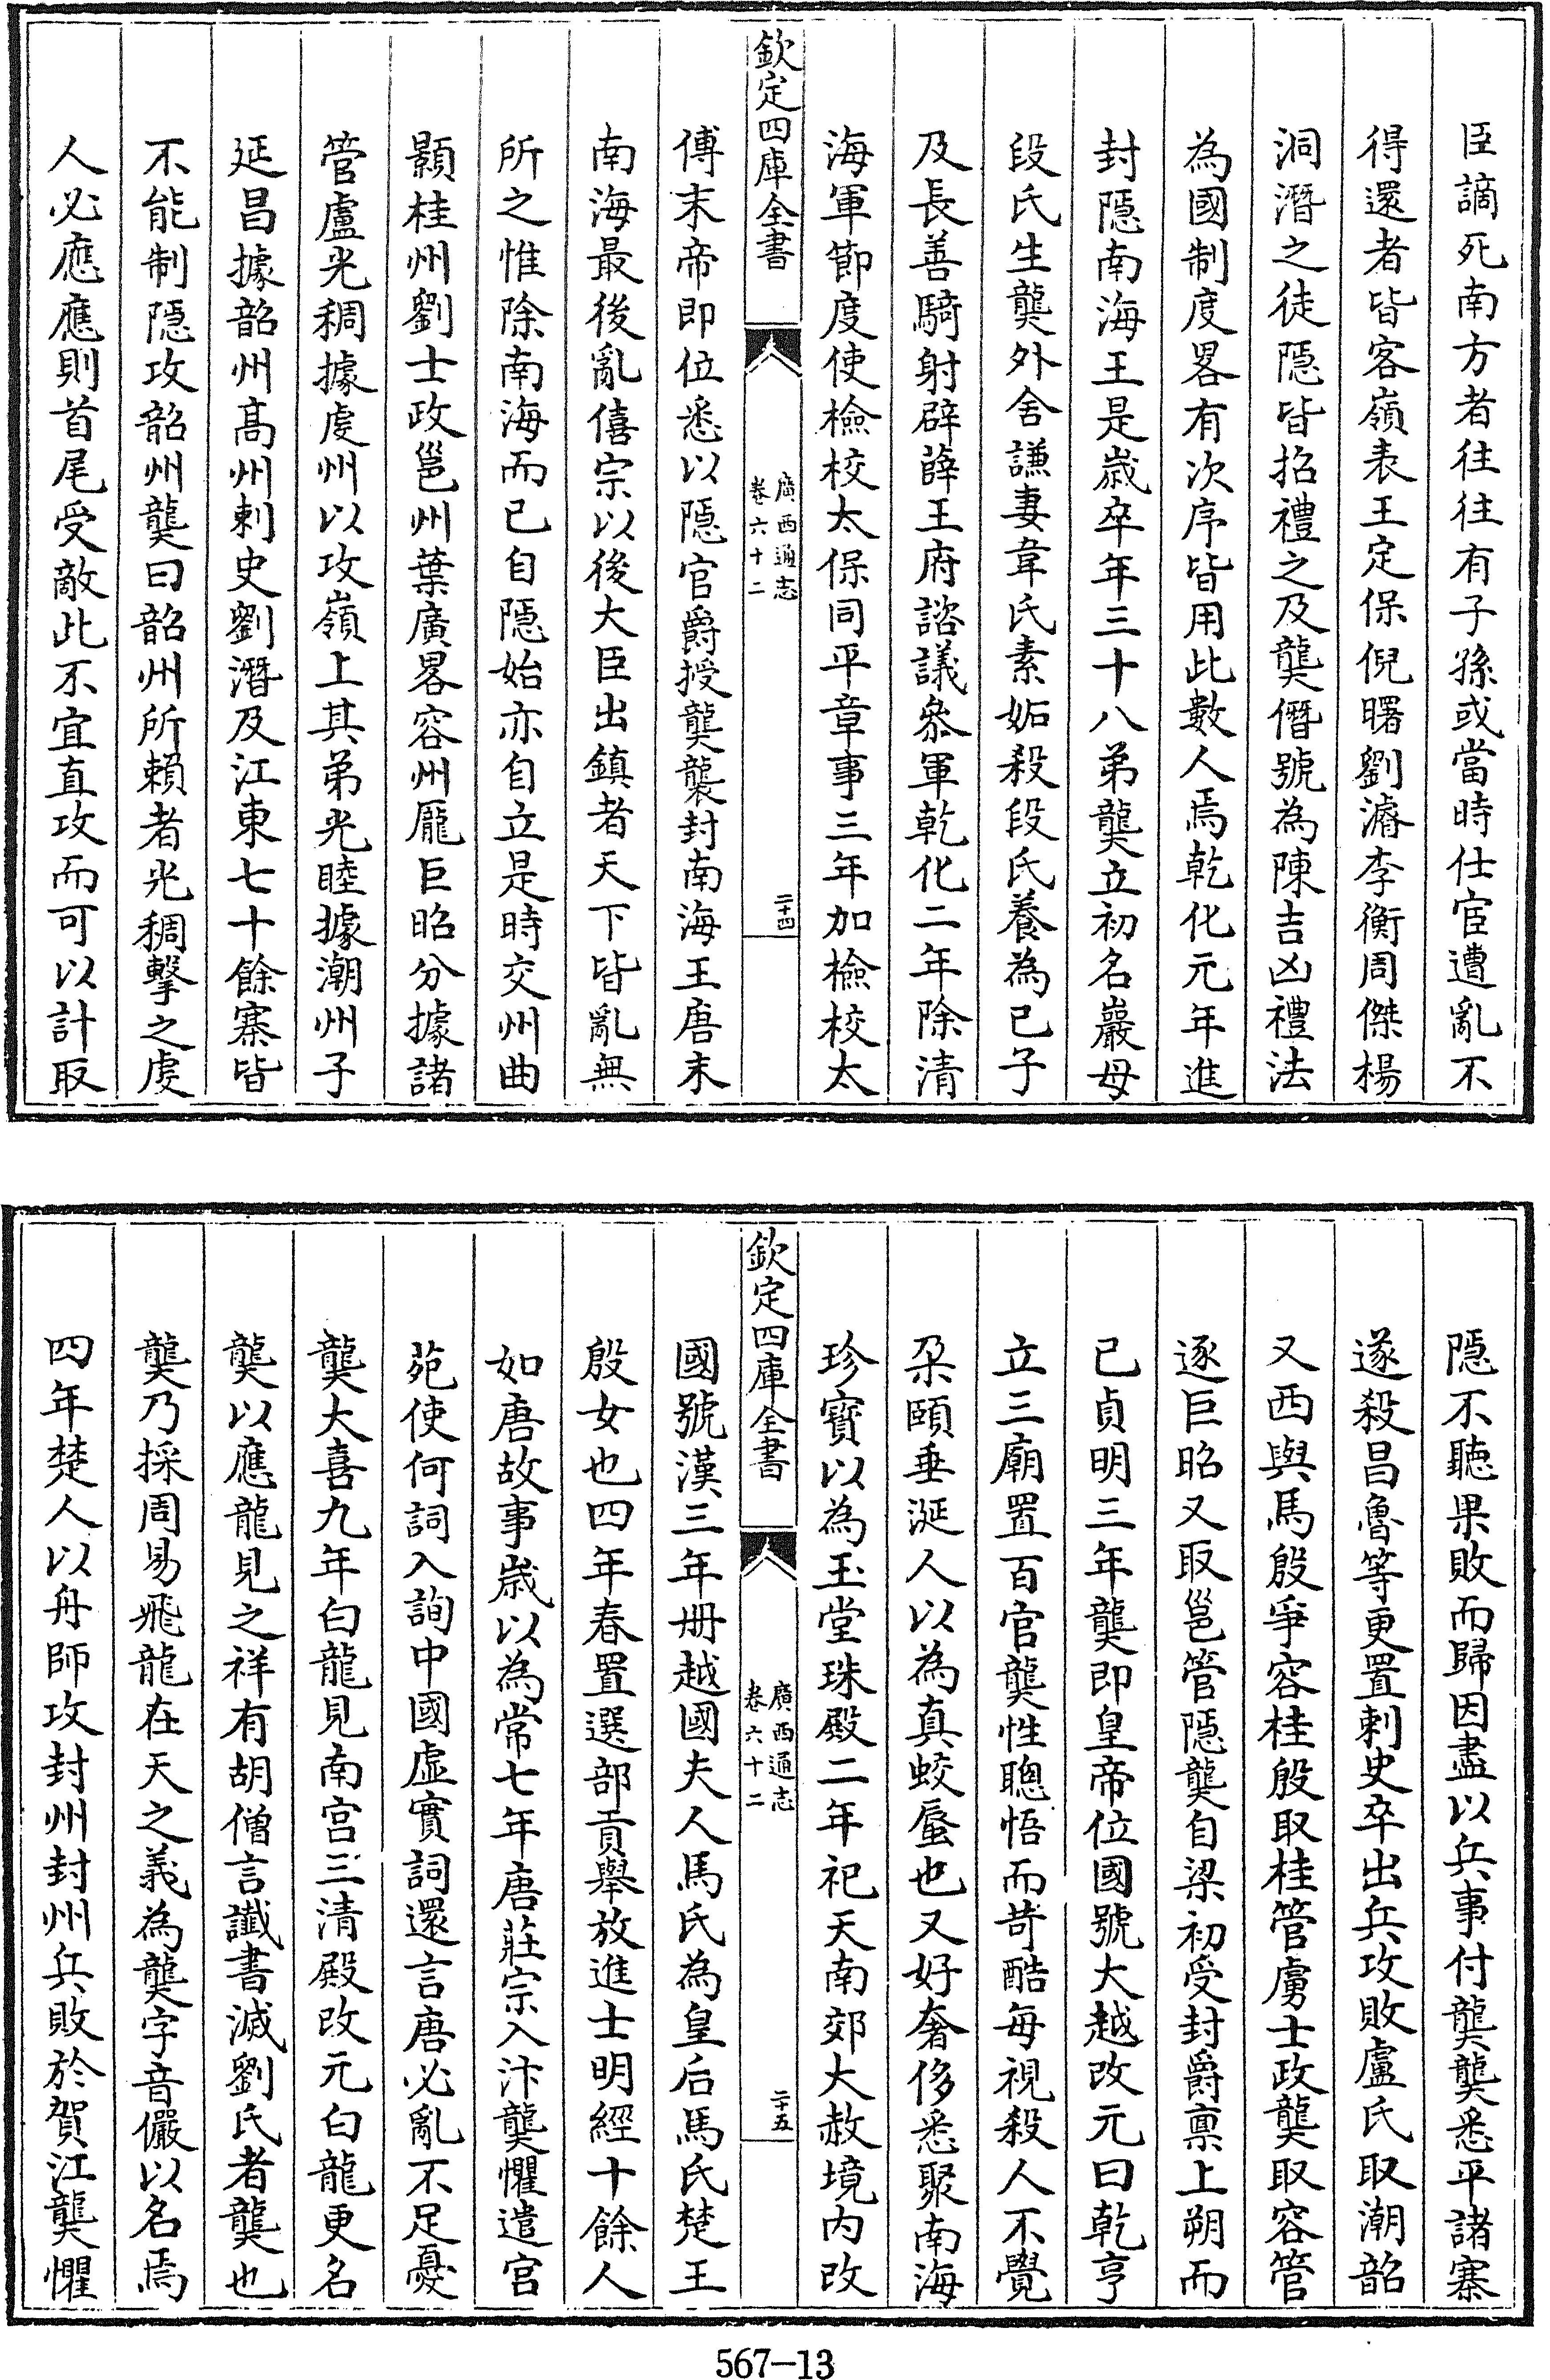 臣謫死南方者往往有子孫或當時仕宦遭亂不
得還者皆客嶺表王定保倪曙劉濬李衡周傑楊
洞潛之徒隱皆招禮之及龑僭號為陳吉凶禮法
為國制度畧有次序皆用此數人焉乾化元年進
封隱南海王是歲卒年三十八弟龑立初名巖母
段氏生龑外舍謙妻韋氏素妬殺段氏養為已子
及長善騎射辟薛王府諮議叅軍乾化二年除清
海軍節度使檢校太保同平章事三年加檢校太
欽定四庫全書
廣西通志
卷六十二
二十四
傅末帝即位悉以隱官爵授龑襲封南海王唐末
南海最後亂僖宗以後大臣出鎮者天下皆亂無
所之惟除南海而已自隱始亦自立是時交州曲
顥桂州劉士政邕州葉廣畧容州龐巨昭分據諸
管盧光稠據虔州以攻嶺上其弟光睦據潮州子
延昌據韶州高州刺史劉潛及江東七十餘寨皆
不能制隱攻韶州龑曰韶州所賴者光稠擊之虔
人必應應則首尾受敵此不宜直攻而可以計取
隱不聽果敗而歸因盡以兵事付龑龑悉平諸寨
遂殺昌魯等更置刺史卒出兵攻敗盧氏取潮韶
又西與馬殷爭容桂殷取桂管虜士政龑取容管
逐巨昭又取邕管隱龑自梁初受封爵禀上朔而
已貞明三年龑即皇帝位國號大越改元曰乾亨
立三廟置百官龑性聰悟而苛酷每視殺人不覺
朶頤垂涎人以為真蛟蜃也又好奢侈悉聚南海
珍寶以為玉堂珠殿二年祀天南郊大赦境内改
欽定四庫全書
廣西通志
卷六十二
二十五
國號漢三年册越國夫人馬氏為皇后馬氏楚王
殷女也四年春置選部貢舉放進士明經十餘人
如唐故事歲以為常七年唐莊宗入汴龑懼遣宫
苑使何詞入詢中國虛實詞還言唐必亂不足憂
龑大喜九年白龍見南宫三清殿改元白龍更名
龑以應龍見之祥有胡僧言讖書滅劉氏者龑也
龑乃採周易飛龍在天之義為龑字音儼以名焉
四年楚人以舟師攻封州封州兵敗於賀江龑懼
567-13